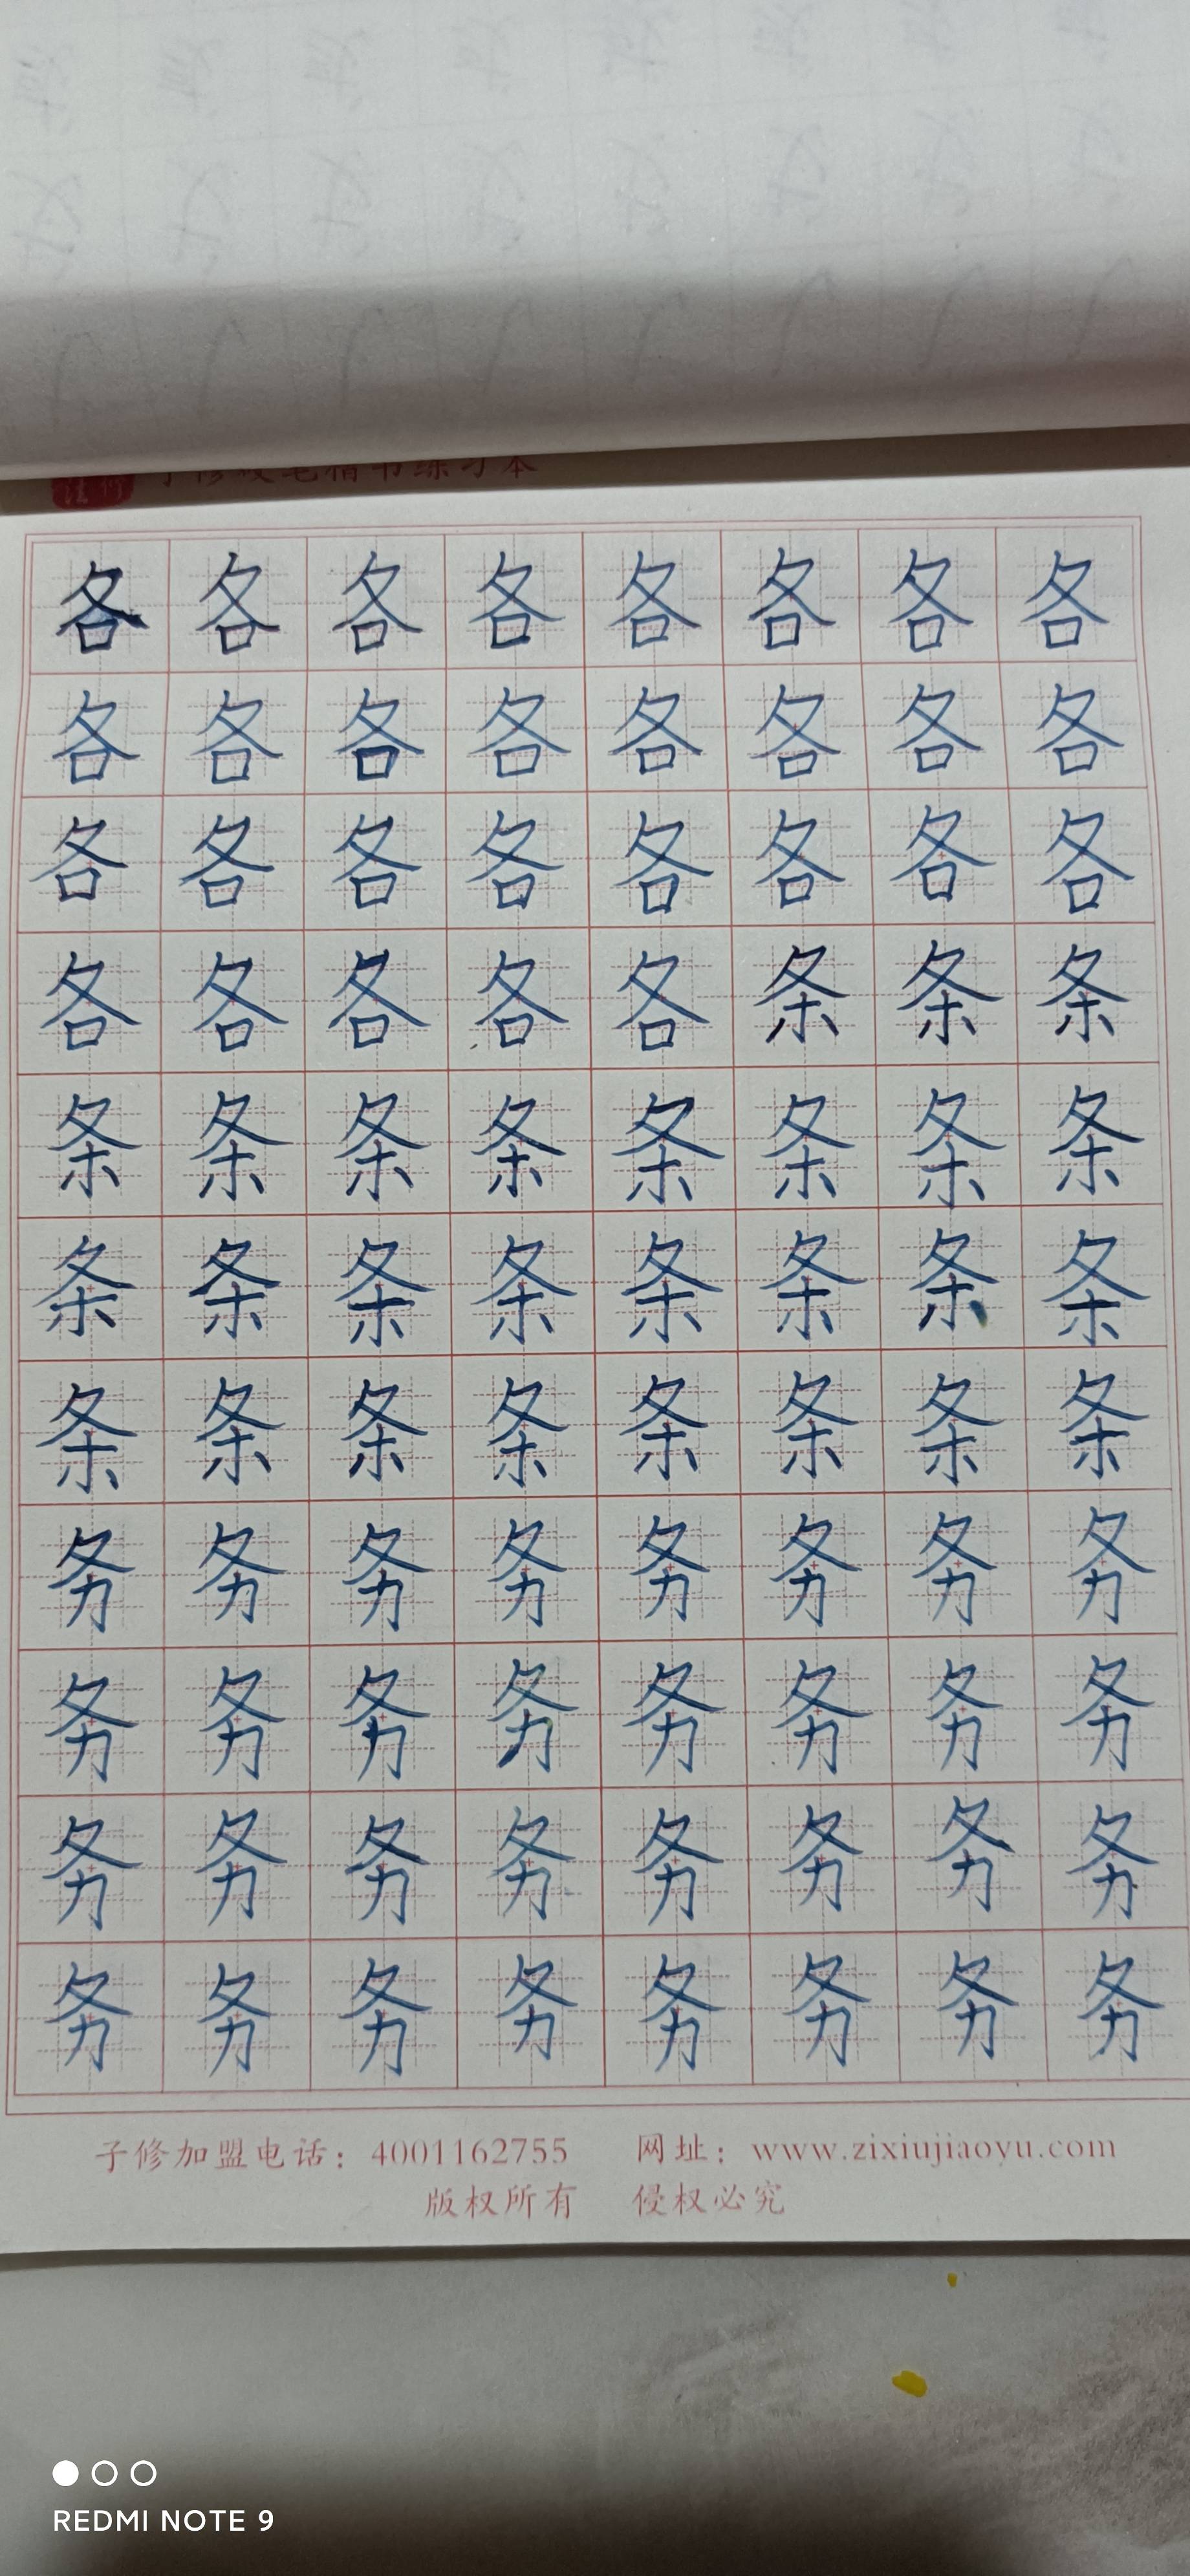 子修硬笔楷书练习本
各各各各各各各各
各各各各各各各各
各各各各各各各各
各各各各各条条条
条条条条条条条条
条条条条条条条条
条条条条条条条条
务务务务务务务务
务务务务务务务务
务务务务务务务务
务务务务务务务务
子修加盟电话：4001162755 网址：www.zixiujiaoyu.com
版权所有 侵权必究
REDMI NOTE 9